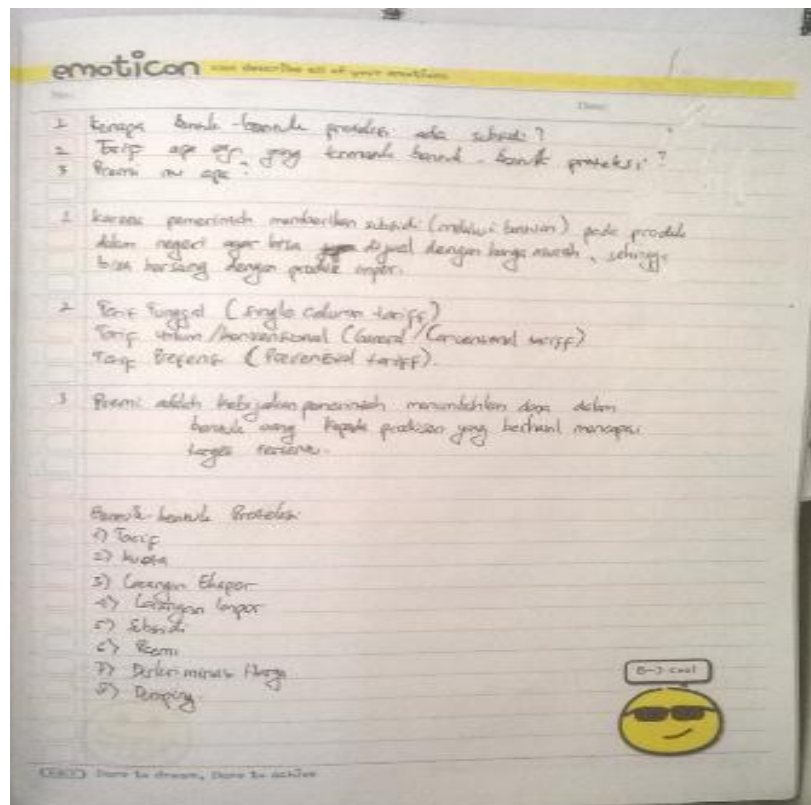 emoticon can describe all of your emotions
No.
Date:
1 Kenapa bentuk-bentuk proteksi ada subsidi?
2 Tarif apa yang termasuk bentuk-bentuk proteksi?
3 Premi itu apa?
1 Karena pemerintah memberikan subsidi (melalui bantuan) pada produk
dalam negeri agar bisa dijual dengan harga murah, sehingga
bisa bersaing dengan produk impor.
2 Tarif Tunggal (single column tariff)
Tarif Umum/konvensional (General/Conventional tariff)
Tarif Preferensi (Preferential tariff).
3 Premi adalah kebijakan pemerintah dana dalam
bentuk uang kepada produsen yang berhasil mencapai
target tertentu.
Bentuk-bentuk Proteksi
1) Tarif
2) Kuota
3) Larangan Ekspor
4) Larangan Impor
5) Subsidi
6) Premi
7) Diskriminasi Harga
8) Dumping.
B-) cool
Dare to dream, Dare to achive